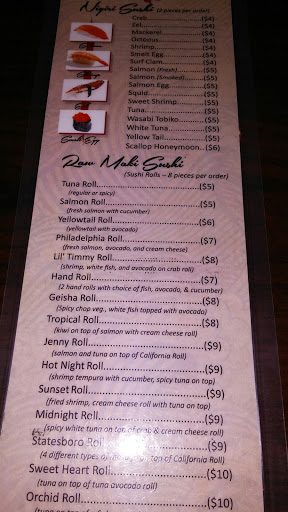 Nigiri Sushi (2 pieces per order)
Crab.....................($4)
Eel.....................($4)
Mackerel.....................($4)
Octopus.....................($4)
Shrimp.....................($4)
Smelt Egg.....................($4)
Surf Clam.....................($4)
Salmon (Fresh).....................($5)
Salmon (Smoked).....................($5)
Salmon Egg.....................($5)
Squid.....................($5)
Sweet Shrimp.....................($5)
Tuna.....................($5)
Wasabi Tobiko.....................($5)
White Tuna.....................($5)
Yellow Tail.....................($5)
Scallop Honeymoon..($6)
Raw Maki Sushi
(Sushi Rolls – 8 pieces per order)
Tuna Roll.....................($5)
(regular or spicy)
Salmon Roll.....................($5)
(fresh salmon with cucumber)
Yellowtail Roll.....................($6)
(yellowtail with avocado)
Philadelphia Roll.....................($7)
(fresh salmon, avocado, and cream cheese)
Lil' Timmy Roll.....................($8)
(shrimp, white fish, and avocado on crab roll)
Hand Roll.....................($7)
(2 hand rolls with choice of fish, avocado, & cucumber)
Geisha Roll.....................($8)
(Spicy chop veg., white fish topped with avocado)
Tropical Roll.....................($8)
(kiwi on top of salmon with cream cheese roll)
Jenny Roll.....................($9)
(salmon and tuna on top of California Roll)
Hot Night Roll.....................($9)
(shrimp tempura with cucumber, spicy tuna on top)
Sunset Roll.....................($9)
(fried shrimp, cream cheese roll with tuna on top)
Midnight Roll.....................($9)
(spicy white tuna on top of crab & cream cheese roll)
Statesboro Roll.....................($9)
(4 different types of on top of California Roll)
Sweet Heart Roll.....................($10)
(tuna on top of tuna avocado roll)
Orchid Roll.....................($10)